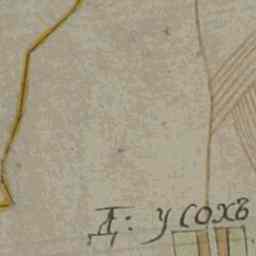 Д: усохъ